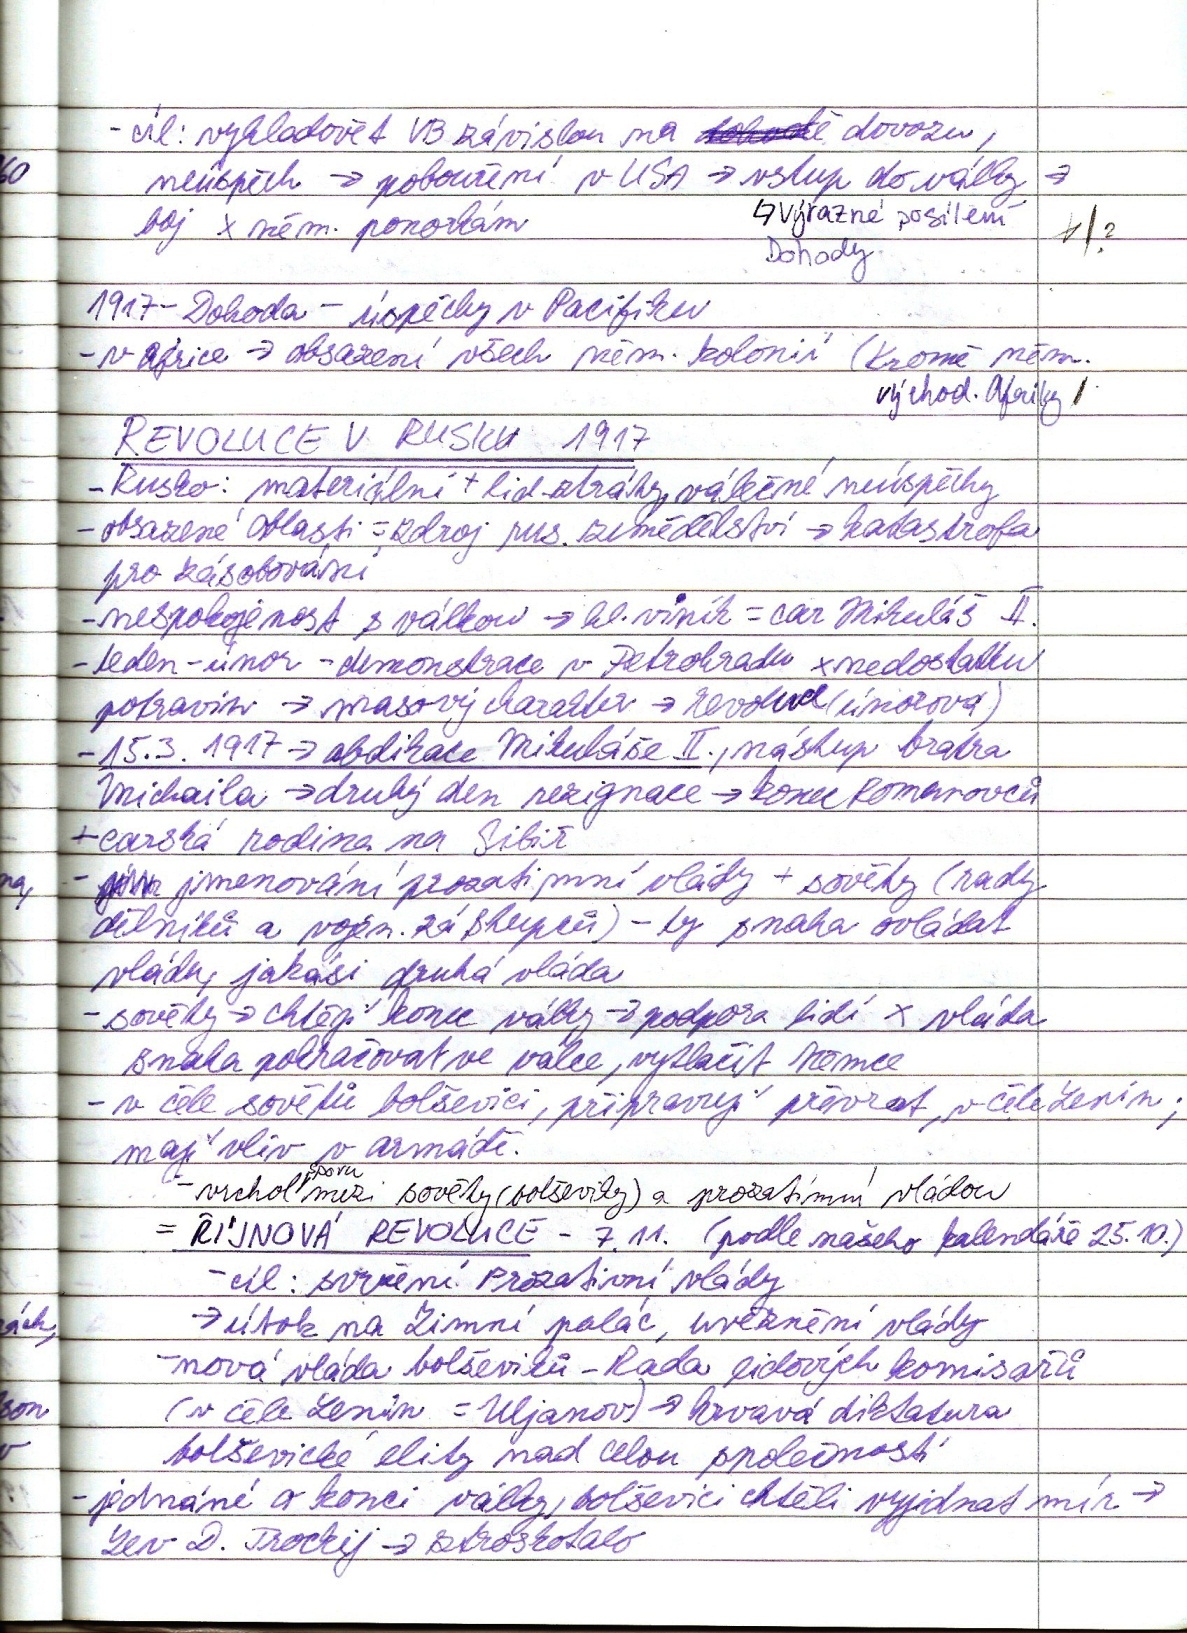 - cíl: vyhladovět VB závislou na dovozu,
neúspěch → pobouření v USA → vstup do války →
boj x něm. ponorkám
↳ výrazné posílení
Dohody
1917 - Dohoda - úspěchy v Pacifiku
- v Africe → obsazení všech něm. kolonií (kromě něm.
východ. Afriky)
REVOLUCE V RUSKU 1917
- Rusko: materiální + lid. ztráty, válečné neúspěchy
- obsazené oblasti = zdroj rus. zemědělství → katastrofa
pro zásobování
- nespokojenost s válkou → hl. viník = car Mikuláš II.
- leden - únor - demonstrace v Petrohradu x nedostatku
potravin → masový charakter → revoluce (únorová)
- 15.3. 1917 → abdikace Mikuláše II., nástup bratra
Michaila → druhý den rezignace → konec Romanovců
+ carská rodina na Sibiř
- jmenování prozatimní vlády + sověty (rady
dělníků a vojen. zástupců) - ty snaha ovládat
vládu, jakási druhá vláda
- sověty → chtějí konec války → podpora lidí x vláda
snaha pokračovat ve válce, vytlačit Němce
- v čele sovětů bolševici, připravují převrat, v čele Lenin;
mají vliv v armádě.
- vrchol sporu mezi sověty (bolševiky) a prozatimní vládou
= ŘÍJNOVÁ REVOLUCE - 7.11. (podle našeho kalendáře 25.10.)
- cíl: svržení Prozatimní vlády
→ útok na Zimní palác, uvěznění vlády
- nová vláda bolševiků - Rada lidových komisařů
(v čele Lenin = Uljanov) → krvavá diktatura
bolševické elity nad celou společností
- jednáné o konci války, bolševici chtěli vyjednat mír →
Lev D. Trockij → ztroskotalo